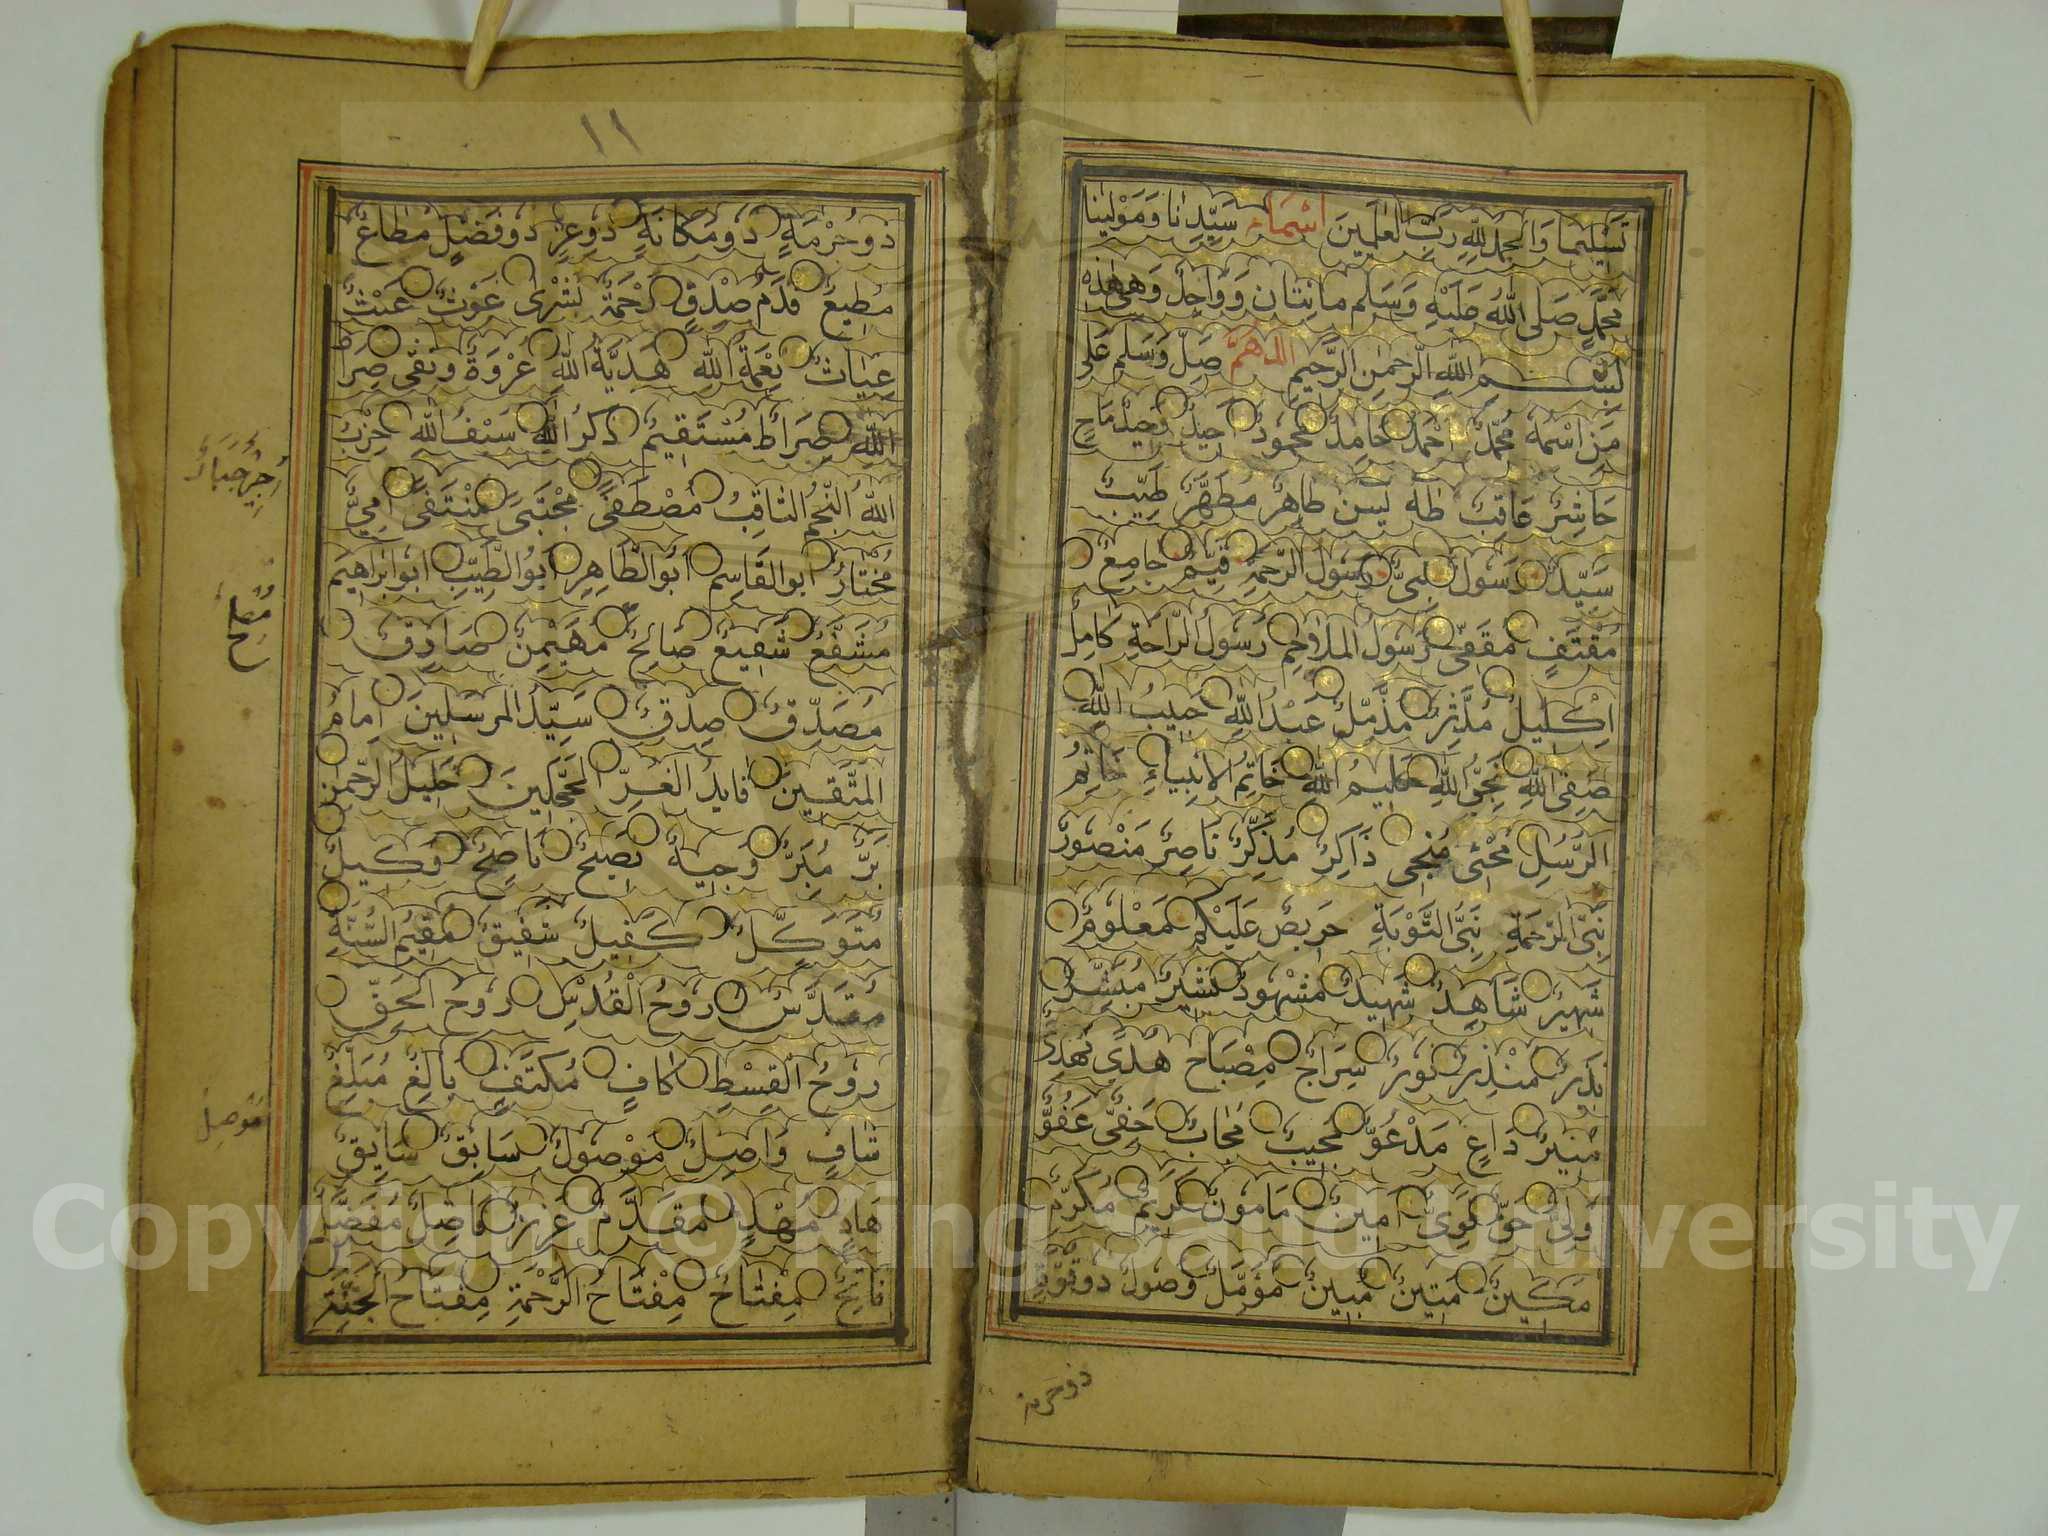 تَسْلِيمًا وَالْحَمْدُ لِلّٰهِ رَبِّ الْعٰلَمِينَ اَسْمَاءُ سَيِّدِنَا وَمَوْلٰينَا
مُحَمَّدٍ صَلَّى اللّٰهُ عَلَيْهِ وَسَلَّم مائتان وَوَاحِدٌ وَهِىَ هٰذِه
بِسْمِ اللّٰهِ الرَّحمٰنِ الرَّحِيمِ اللّٰهُمَّ صَلِّ وَسَلِّم عَلٰى
مَنِ اسْمُهُ مُحَمَّدٌ اَحْمَدُ حَامِدٌ مَحْمُودٌ اَحِيدٌ وَحِيدٌ مَاحٍ
حَاشِرٌ عَاقِبٌ طٰهٰ يٰسٓ طَاهِرٌ مُطَهَّرٌ طَيِّبٌ
سَيِّدٌ رَسُولٌ نَبِىٌّ رَسُولُ الرَّحمَةِ قَيِّمٌ جَامِعٌ
مُقْتَفٍ مُقَفِّى رَسُولُ المَلاَحِمِ رَسُولُ الرَّاحَةِ كَامِلٌ
اِكْلِيلٌ مُدَّثِّرٌ مُزَّمِّلٌ عَبْدُ اللّٰهِ حَبِيبُ اللّٰهِ
صَفِىُّ اللّٰهِ نَجِىُّ اللّٰهِ كَلِيمُ اللّٰهِ خَاتِمُ الاَنْبِيَاءِ خَاتِمُ
الرُّسُلِ مُحْيِى مُنْجِى ذَاكِرٌ مُذَكِّرٌ نَاصِرٌ مَنْصُورٌ
نَبِىُّ الرَّحْمَةِ نَبِىُّ التَّوْبَةِ حَرِيصٌ عَلَيْكُم مَعْلُومٌ
شَهِيرٌ شَاهِدٌ شَهِيدٌ مَشْهُودٌ بَشِيرٌ مُبَشِّرٌ
نَذِيرٌ مُنْذِرٌ نُورٌ سِرَاجٌ مِصْبَاحٌ هُدًى مَهْدِىٌّ
مُنِيرٌ دَاعٍ مَدْعُوٌّ مُجِيبٌ مُجَابٌ حَفِىٌّ عَفُوٌّ
وَلِىٌّ حَقٌّ قَوِىٌّ اَمِينٌ مَامُونٌ كَرِيمٌ مُكَرَّمٌ
مَكِينٌ مَتِينٌ مُبِينٌ مُؤَمَّلٌ وَصُولٌ ذُو قُوَّةٍ
ذو حرمة
١١
ذُو حُرْمَةٍ ذُو مَكَانَةٍ ذُو عِزٍّ ذُو فَضْلٍ مُطَاعٌ
مُطِيعٌ قَدَمُ صِدْقٍ رَحْمَةٌ بُشْرٰى غَوْثٌ غَيْثٌ
غِيَاثٌ نِعْمَةُ اللّٰهِ هَدِيَّةُ اللّٰهِ عُرْوَةٌ وُثْقٰى صِرَاطُ
اللّٰهِ صِرَاطٌ مُسْتَقِيمٌ ذِكْرُ اللّٰهِ سَيْفُ اللّٰهِ حِزْبُ
اللّٰهِ النَّجْمُ الثَّاقِبُ مُصْطَفًى مُجْتَبًى مُنْتَقًى اُمِّىٌّ
مُخْتَارٌ اَبُو القَاسِمِ اَبُو الطَّاهِرِ اَبُو الطَّيِّبِ اَبُو اِبْرَاهِيمَ
مُشَفَّعٌ شَفِيعٌ صَالِحٌ مُهَيْمِنٌ صَادِقٌ
مُصَدِّقٌ صِدْقٌ سَيِّدُ المُرْسَلِينَ اِمَامُ
المُتَّقِينَ قَائِدُ الغُرِّ المُحَجَّلِينَ خَلِيلُ الرَّحمٰنِ
بَرٌّ مُبَرٌّ وَجِيهٌ نَصِيحٌ نَاصِحٌ وَكِيلٌ
مُتَوَكِّلٌ كَفِيلٌ شَفِيقٌ مُقِيمُ السُّنَّةِ
مُقَدَّسٌ رُوحُ الْقُدُسِ رُوحُ الْحَقِّ
رُوحُ الْقِسْطِ كَافٍ مُكْتَفٍ بَالِغٌ مُبَلِّغٌ
شَافٍ وَاصِلٌ مَوْصُولٌ سَابِقٌ سَائِقٌ
هَادٍ مُهْدٍ مُقَدَّمٌ عَزِيزٌ فَاضِلٌ مُفَضَّلٌ
فَاتِحٌ مِفْتَاحٌ مِفْتَاحُ الرَّحْمَةِ مِفْتَاحُ الْجَنَّةِ
مُصْلِحٌ
مُوصِل
Copyright © King Saud University